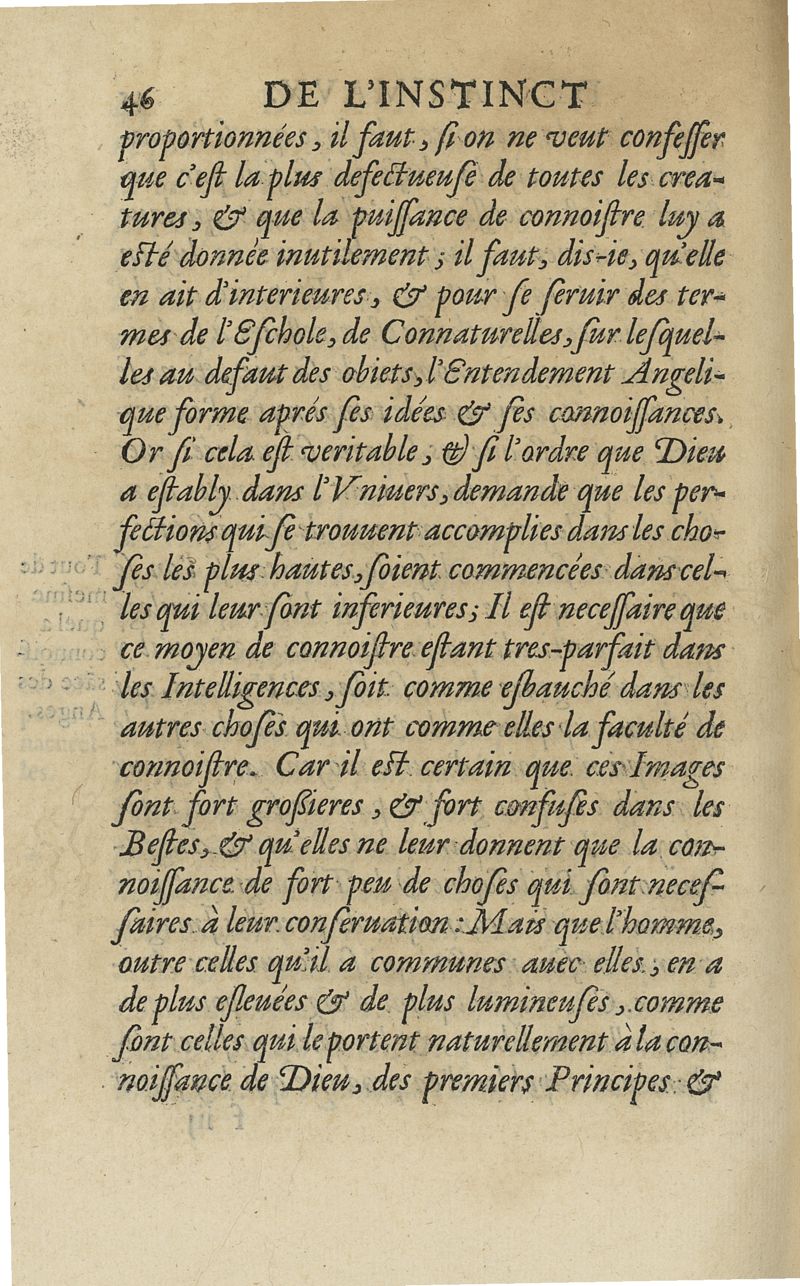 46 DE L'INSTINCT
proportionnées, il faut, ſi on ne veut confeſſer
que c'eſt la plus defectueuſe de toutes les crea-
tures, & que la puiſſance de connoiſtre luy a
eſté donnée inutilement ; il faut, dis-ie, qu'elle
en ait d'interieures, & pour ſe ſeruir des ter-
mes de l'Eſchole, de Connaturelles, ſur leſquel-
les au defaut des obiets, l'Entendement Angeli-
que forme aprés ſes idées & ſes connoiſſances.
Or ſi cela eſt veritable, & ſi l'ordre que Dieu
a eſtably dans l'Vniuers, demande que les per-
fections qui ſe trouuent accomplies dans les cho-
ſes les plus hautes, ſoient commencées dans cel-
les qui leur ſont inferieures; Il eſt neceſſaire que
ce moyen de connoiſtre eſtant tres-parfait dans
les Intelligences, ſoit comme eſbauché dans les
autres choſes qui ont comme elles la faculté de
connoiſtre. Car il eſt certain que ces Images
ſont fort groſſieres, & fort confuſes dans les
Beſtes, & qu'elles ne leur donnent que la con-
noiſſance de fort peu de choſes qui ſont neceſ-
ſaires à leur conſeruation : Mais que l'homme,
outre celles qu'il a communes auec elles, en a
de plus eſleuées & de plus lumineuſes, comme
ſont celles qui le portent naturellement à la con-
noiſſance de Dieu, des premiers Principes &